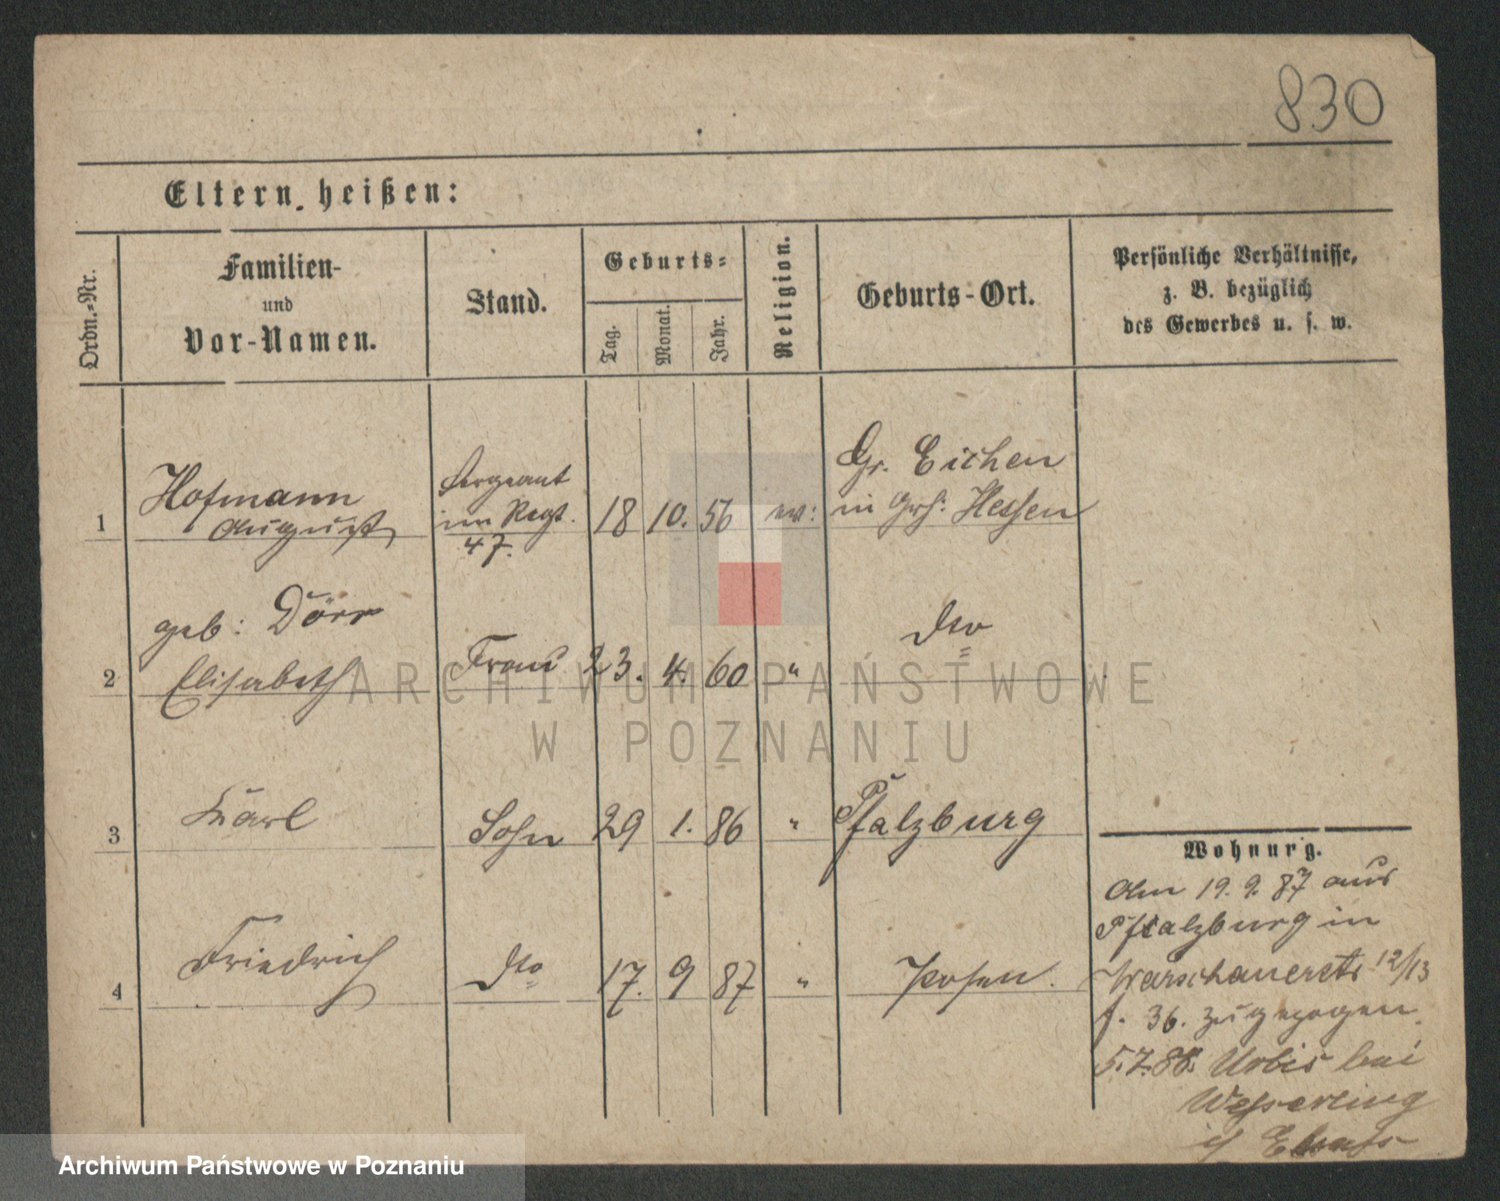 830
Eltern heißen:
Ordn.-Nr.
Familien-
und
Vor-Namen.
Stand.
Geburts-
Tag.
Monat.
Jahr.
Religion.
Geburts-Ort.
Persönliche Verhältnisse,
z. B. bezüglich
des Gewerbes u. s. w.
1 Hofmann August Sergeant im Regt. 47. 18 10. 56 ev: Gr. Eichen in Grh. Hessen
2 geb: Dörr Elisabeth Frau 23. 4. 60 " dto
3 Karl Sohn 29 1. 86 " Pfalzburg
4 Friedrich dto 17. 9 87 " Posen.
Wohnung.
Am 19. 9. 87 aus
Pfalzburg in
Warschauerstr 12/13
f. 36. zugezogen.
5.7.88. Urbis bei
Wesserling
i/ Elsass
ARCHIWUM PAŃSTWOWE
W POZNANIU
Archiwum Państwowe w Poznaniu